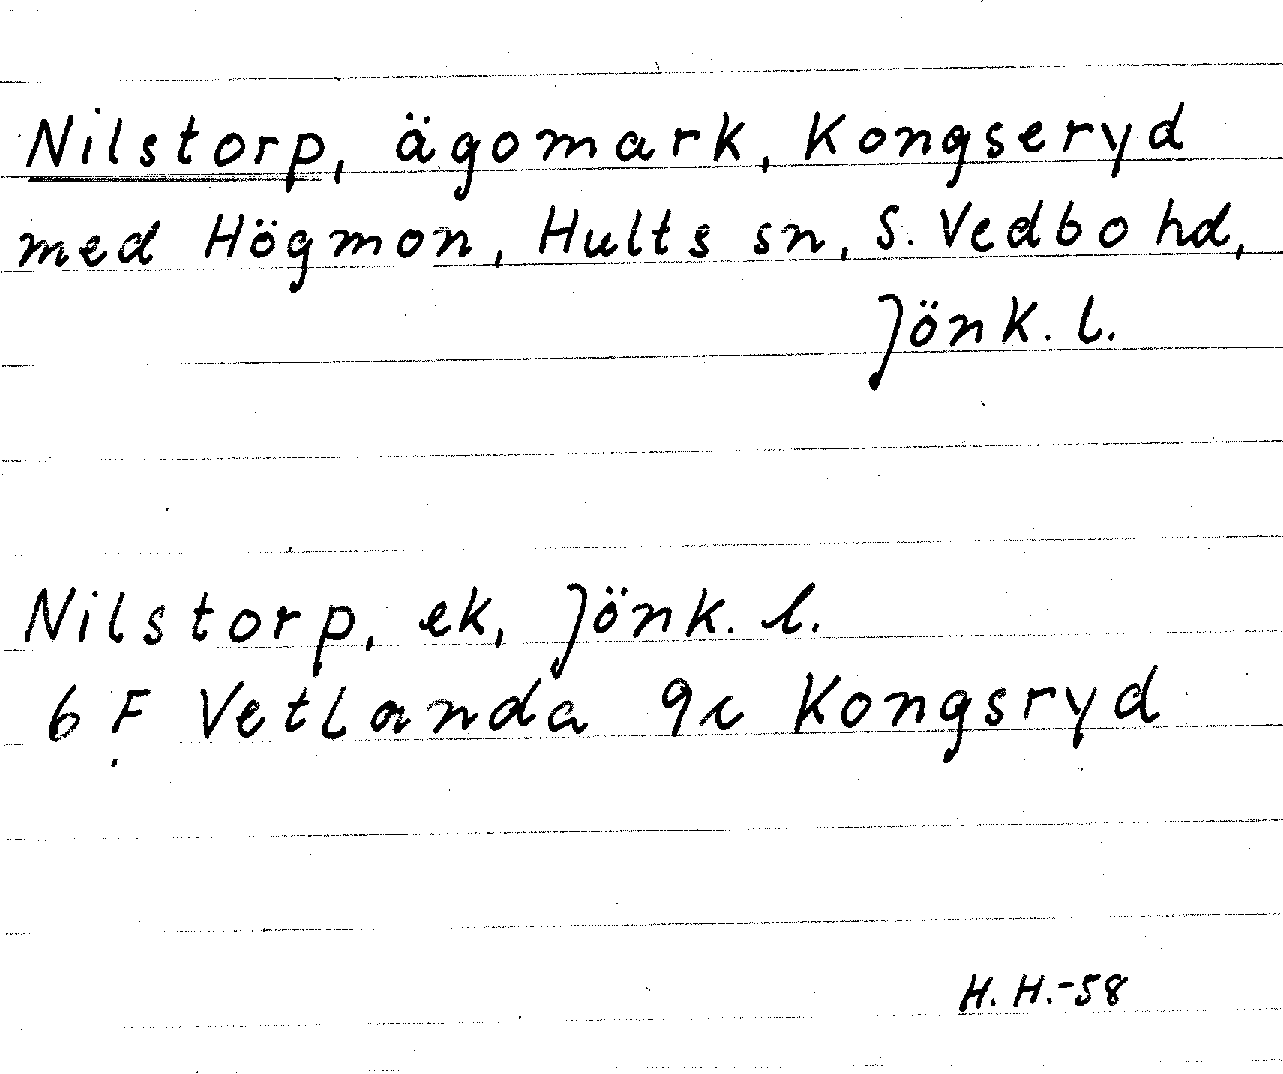 Nilstorp, ägomark, Kongseryd
med Högmon, Hults sn, S. Vedbo hd,
Jönk. l.
Nilstorp, ek, Jönk. l.
6 F Vetlanda 9c Kongsryd
H. H.-58